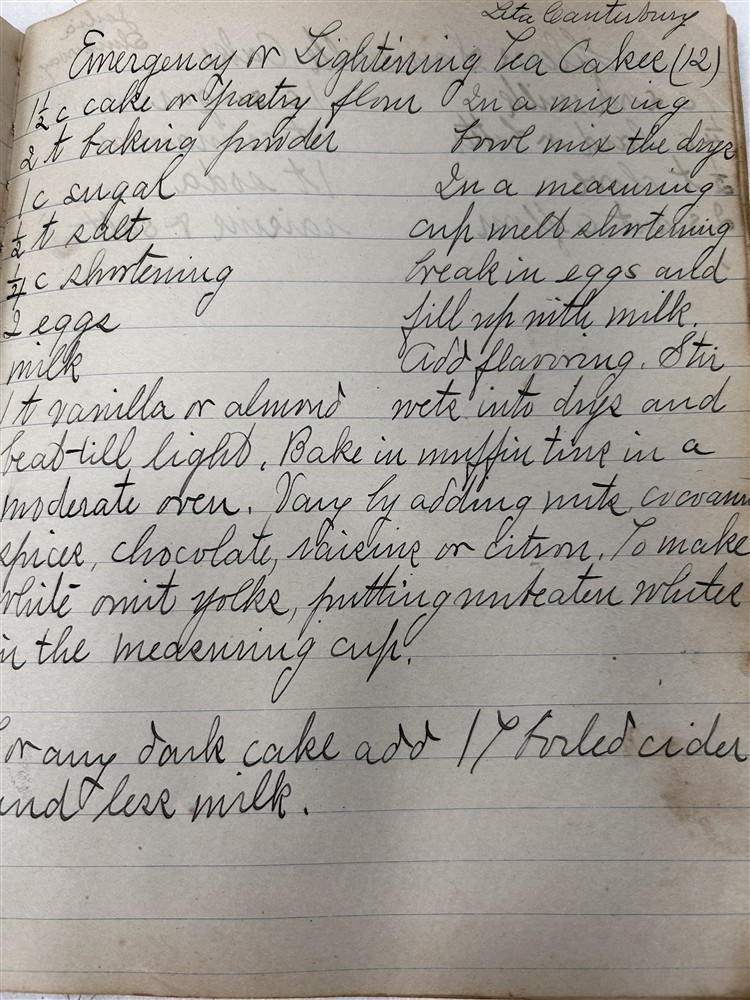 Leta Canterbury
Emergency or Lightening Tea Cakes (12)
1½ c cake or pastry flour In a mixing
2 t baking powder bowl mix the drys
1 c sugar In a measuring
½ t salt cup melt shortening
¼ c shortening break in eggs and
2 eggs fill up with milk.
milk Add flavoring. Stir
1 t vanilla or almond wets into drys and
beat till light. Bake in muffin tins in a
moderate oven. Vary by adding nuts,
spices, chocolate, raisins or citron. To make
white omit yolks, putting unbeaten whites
in the measuring cup.
For any dark cake add 1 T boiled cider
and less milk.